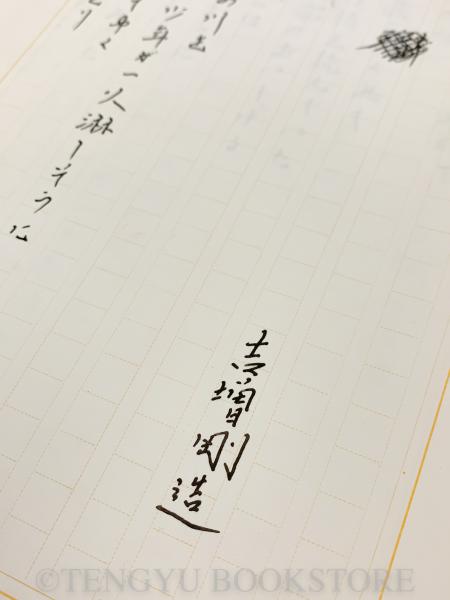 吉増剛造
の川を
少年が一人淋しそうに
歩く
り
©TENGYU BOOKSTORE